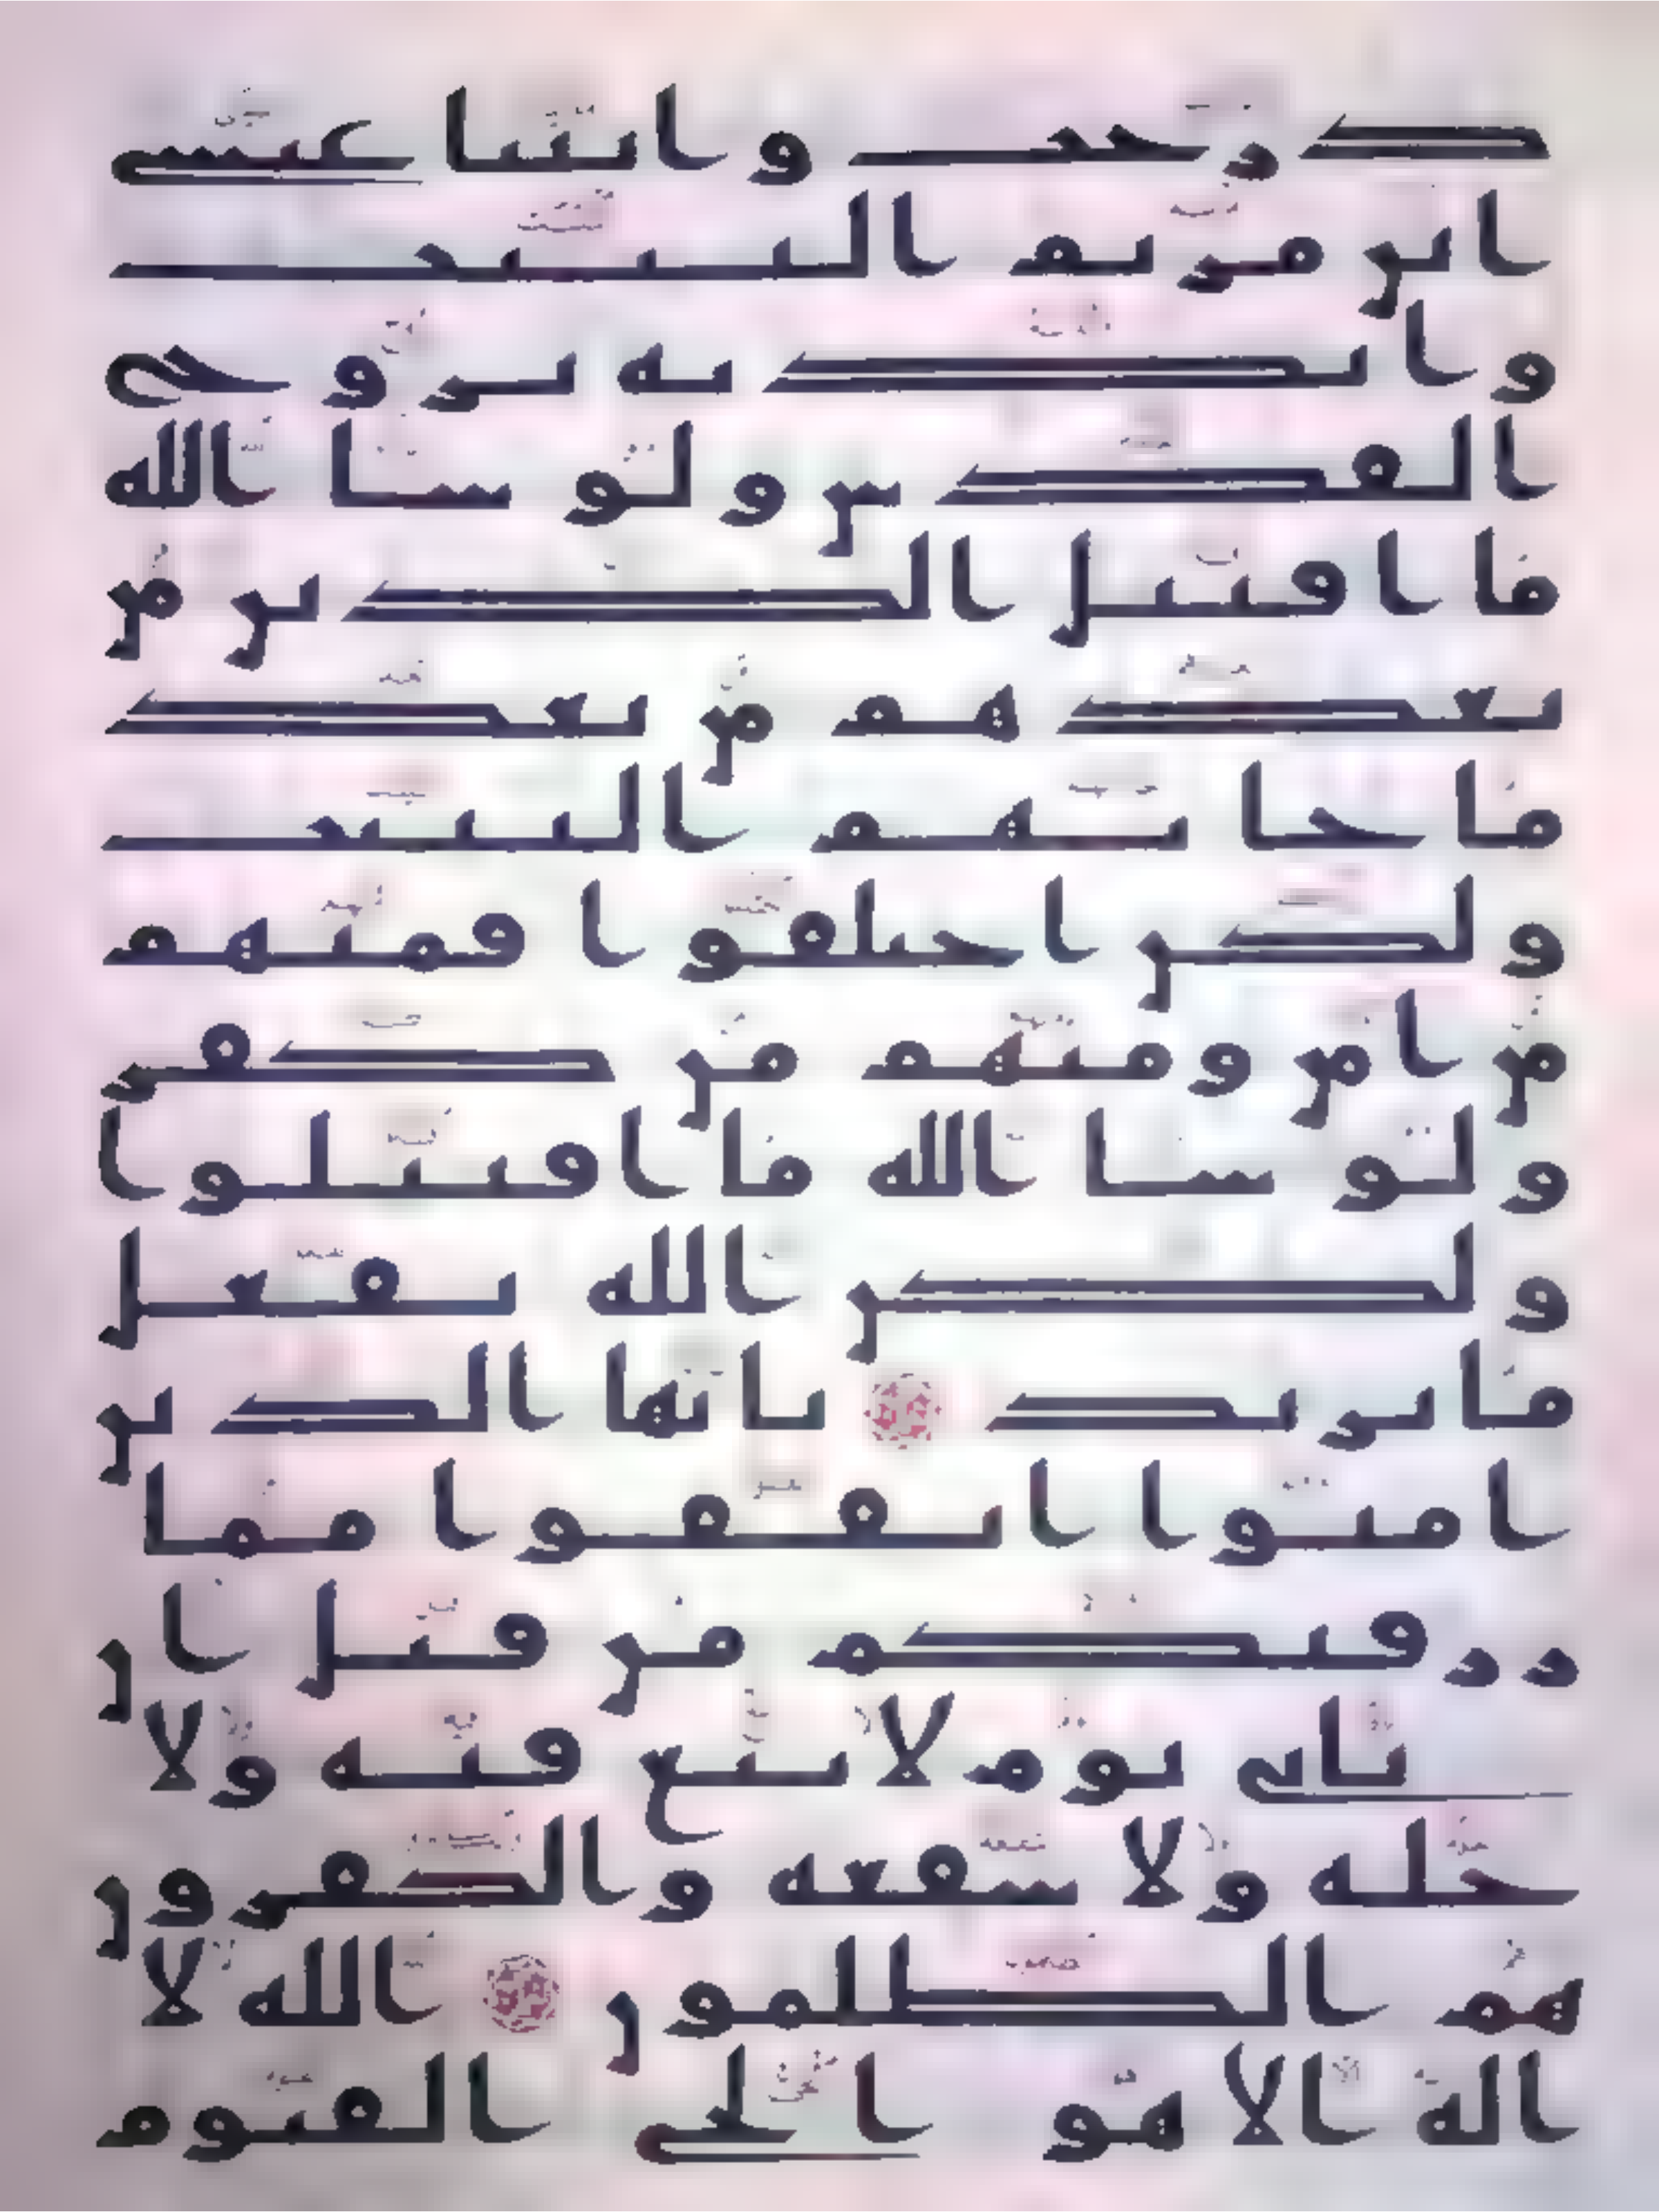 درجت واتينا عيسى
ابن مريم البينت
وايدنه بروح
القدس ولو شا الله
ما اقتتل الذين من
بعدهم من بعد
ما جاتهم البينت
ولكن اختلفوا فمنهم
من امن ومنهم من كفر
ولو شا الله ما اقتتلوا
ولكن الله يفعل
ما يريد يايها الذين
امنوا انفقوا مما
رزقنكم من قبل ان
ياتى يوم لا بيع فيه ولا
خله ولا شفعه والكفرون
هم الظلمون الله لا
اله الا هو الحى القيوم